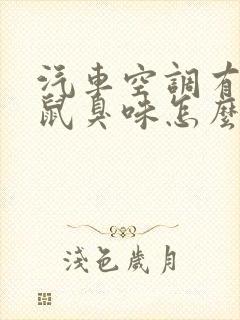 汽車空調有
鼠臭味怎麼
淺色歲月